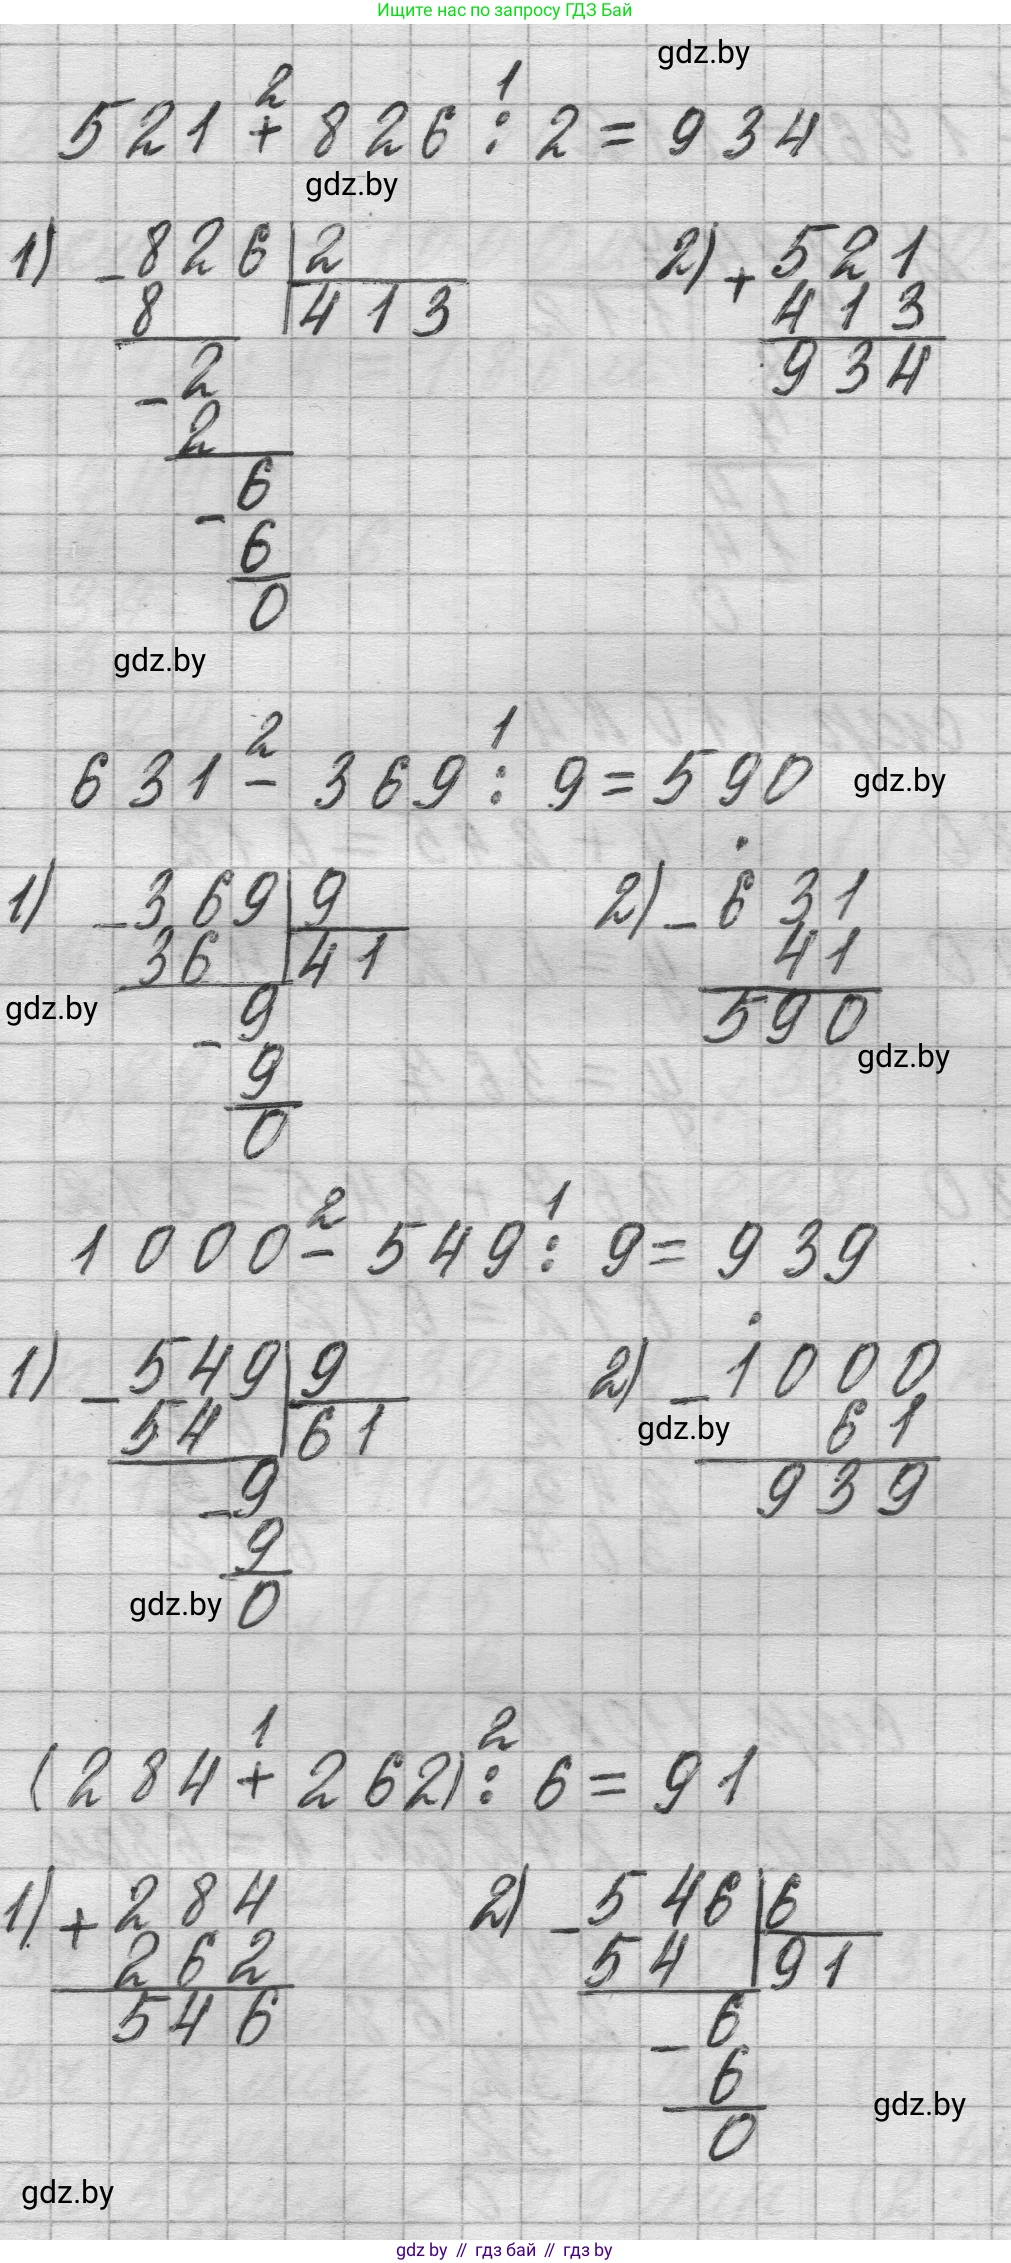 Ищите нас по запросу ГДЗ Бай
gdz.by
2 1
521 + 826 : 2 = 934
gdz.by
1) - 826 | 2 2) + 521
8 413 413
934
- 2
2
- 6
6
0
gdz.by
2 1
631 - 369 : 9 = 590
gdz.by
1) - 369 | 9 2) - 631
36 41 41
gdz.by
9 590
gdz.by
- 9
0
2 1
1000 - 549 : 9 = 939
1) - 549 | 9 2) - 1000
54 61 61
gdz.by
- 9 939
9
gdz.by
0
1 2
(284 + 262) : 6 = 91
1) + 284 2) - 546 | 6
262 54 91
546 - 6
6
gdz.by
0
gdz.by
gdz by // гдз бай // gdz by